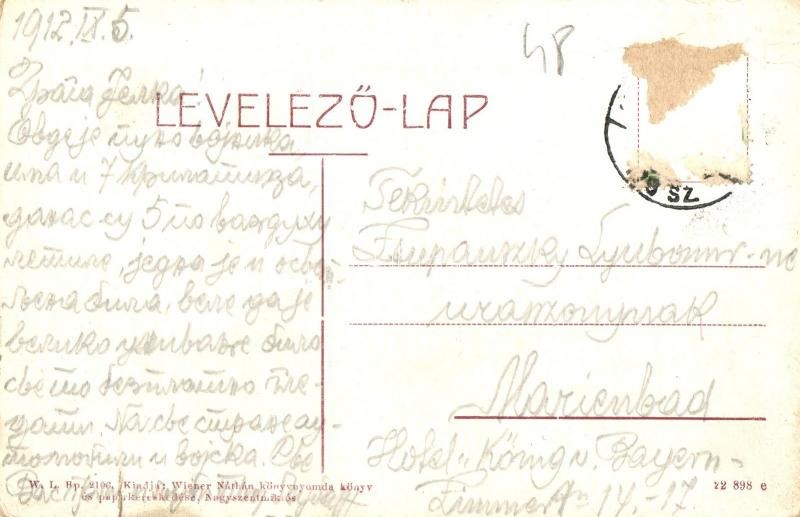 1912.IX.5.
48
Драга Јелка!
LEVELEZŐ-LAP
Овде је пуно војника
има и 7 крилатица,
данас су 5 по ваздуху
летиле, једна је и
била, веле да је
велико уживање било
све то бесплатно гле-
дати. На све стране ау-
томобили и војска. Све
SZ
Tekintetes
Lyubomir-né
uraszonynak
Marienbad
Hotel „König v. Bayern"
Zimmer 14.-17.
W. L. Bp. 2196. Kiadja: Wiener Náthán könyvnyomda könyv
és papirkereskedése, Nagyszentmiklós
22 898 e